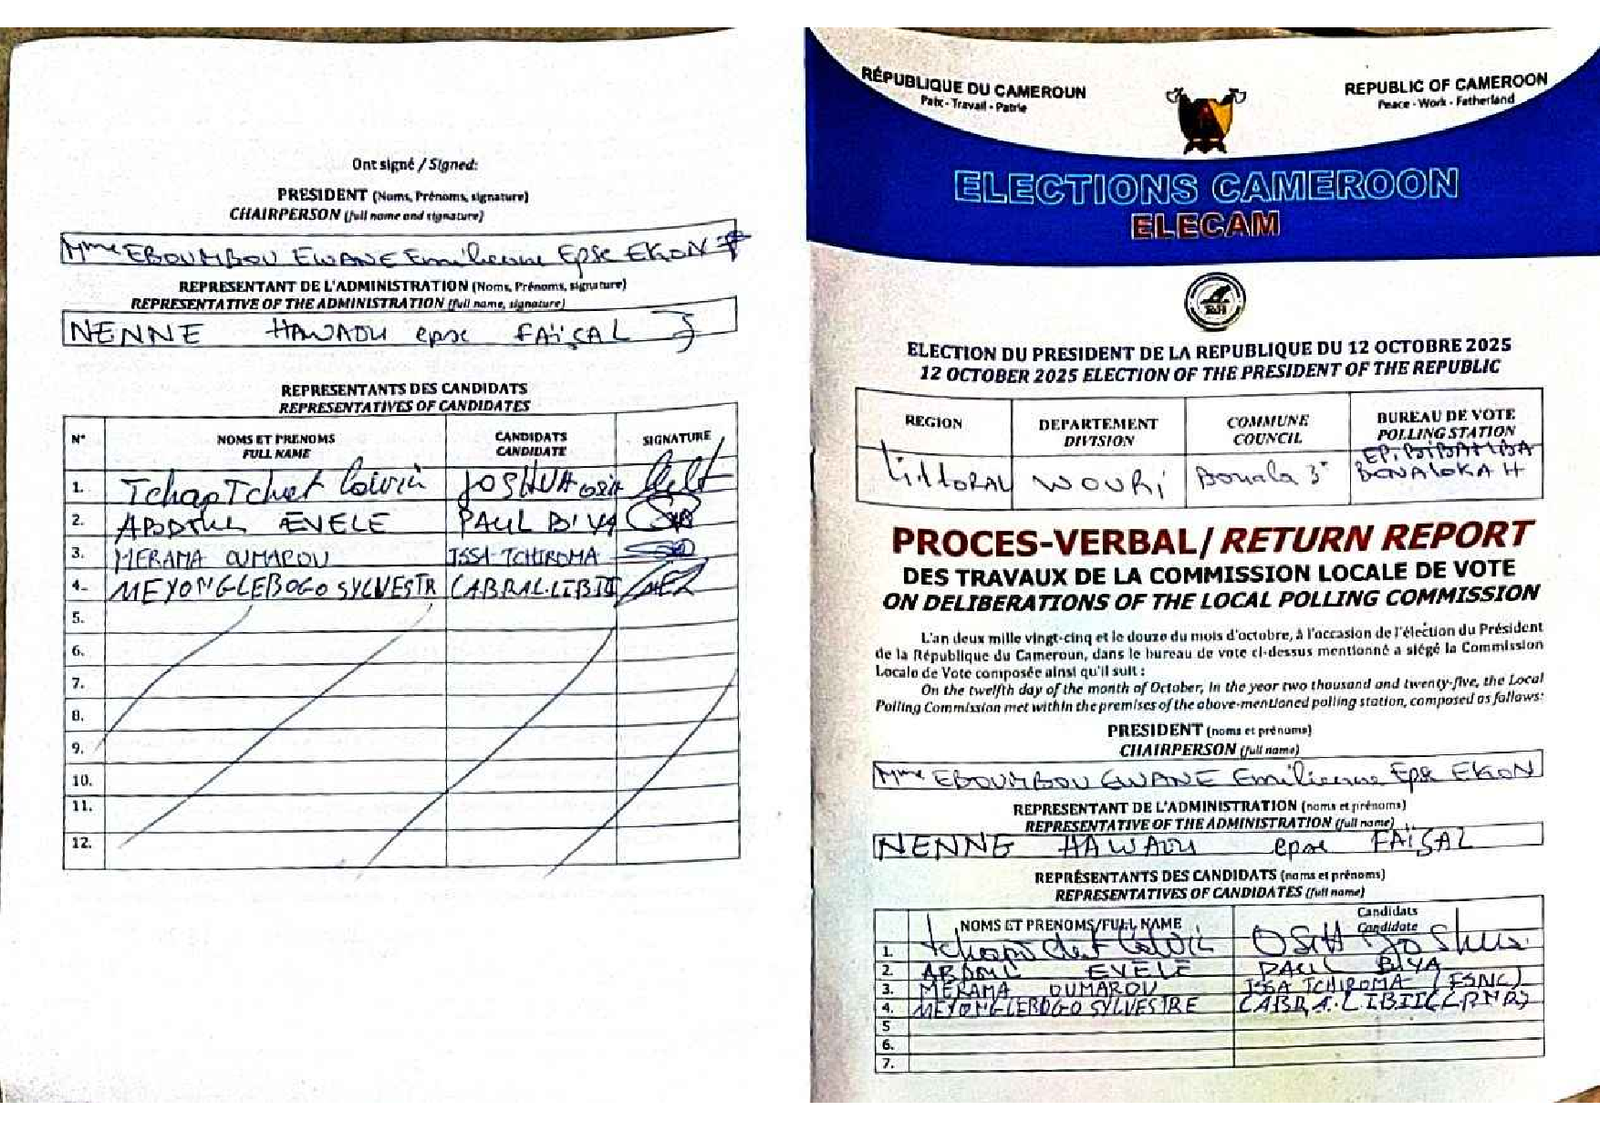 Ont signé / Signed:
PRESIDENT (Noms, Prénoms, signature)
CHAIRPERSON (full name and signature)
Mme EBOUMBOU EWANE Emilienne Epse EKON
REPRESENTANT DE L'ADMINISTRATION (Noms, Prénoms, signature)
REPRESENTATIVE OF THE ADMINISTRATION (full name, signature)
NENNE HAWAOU epse FAÏSAL
REPRESENTANTS DES CANDIDATS
REPRESENTATIVES OF CANDIDATES
N° NOMS ET PRENOMS FULL NAME CANDIDATS CANDIDATE SIGNATURE
1. TchapTchet JOSHUA OSIH
2. EVELE PAUL BIYA
3. MERAMA OUMAROU ISSA TCHIROMA
4. MEYONGLEBOGO SYLVESTR CABRAL LIBII
5.
6.
7.
8.
9.
10.
11.
12.
RÉPUBLIQUE DU CAMEROUN
Paix - Travail - Patrie
REPUBLIC OF CAMEROON
Peace - Work - Fatherland
ELECTIONS CAMEROON
ELECAM
ELECTION DU PRESIDENT DE LA REPUBLIQUE DU 12 OCTOBRE 2025
12 OCTOBER 2025 ELECTION OF THE PRESIDENT OF THE REPUBLIC
REGION DEPARTEMENT DIVISION COMMUNE COUNCIL BUREAU DE VOTE POLLING STATION
LittORAL WOURi Douala 3e BONALOKA H
PROCES-VERBAL/ RETURN REPORT
DES TRAVAUX DE LA COMMISSION LOCALE DE VOTE
ON DELIBERATIONS OF THE LOCAL POLLING COMMISSION
L'an deux mille vingt-cinq et le douze du mois d'octobre, à l'occasion de l'élection du Président
de la République du Cameroun, dans le bureau de vote ci-dessus mentionné a siégé la Commission
Locale de Vote composée ainsi qu'il suit :
On the twelfth day of the month of October, in the year two thousand and twenty-five, the Local
Polling Commission met within the premises of the above-mentioned polling station, composed as follows:
PRESIDENT (noms et prénoms)
CHAIRPERSON (full name)
Mme EBOUMBOU EWANE Emilienne Epse EKON
REPRESENTANT DE L'ADMINISTRATION (noms et prénoms)
REPRESENTATIVE OF THE ADMINISTRATION (full name)
NENNE HAWAOU epse FAÏSAL
REPRÉSENTANTS DES CANDIDATS (noms et prénoms)
REPRESENTATIVES OF CANDIDATES (full name)
NOMS ET PRENOMS/FULL NAME Candidats Candidate
1. Tchaptchet OSIH Joshua
2. EVELE PAUL BIYA
3. MERAMA OUMAROU ISSA TCHIROMA (FSNC)
4. MEYONGLEBOGO SYLVESTRE CABRAL LIBII (PCRN)
5
6.
7.